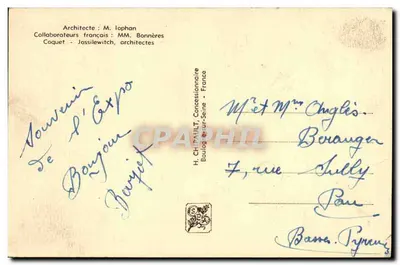 Architecte : M. Iophan
Collaborateurs français : MM. Bonnères
Coquet - Jassilewitch, architectes
Souvenir
de l'Expo
Bonjour
H. CHIPAULT, Concessionnaire
Boulogne-sur-Seine - France
Mr et Mme Anglès
Beranger
7, rue Sully
Pau
Basses Pyrénées